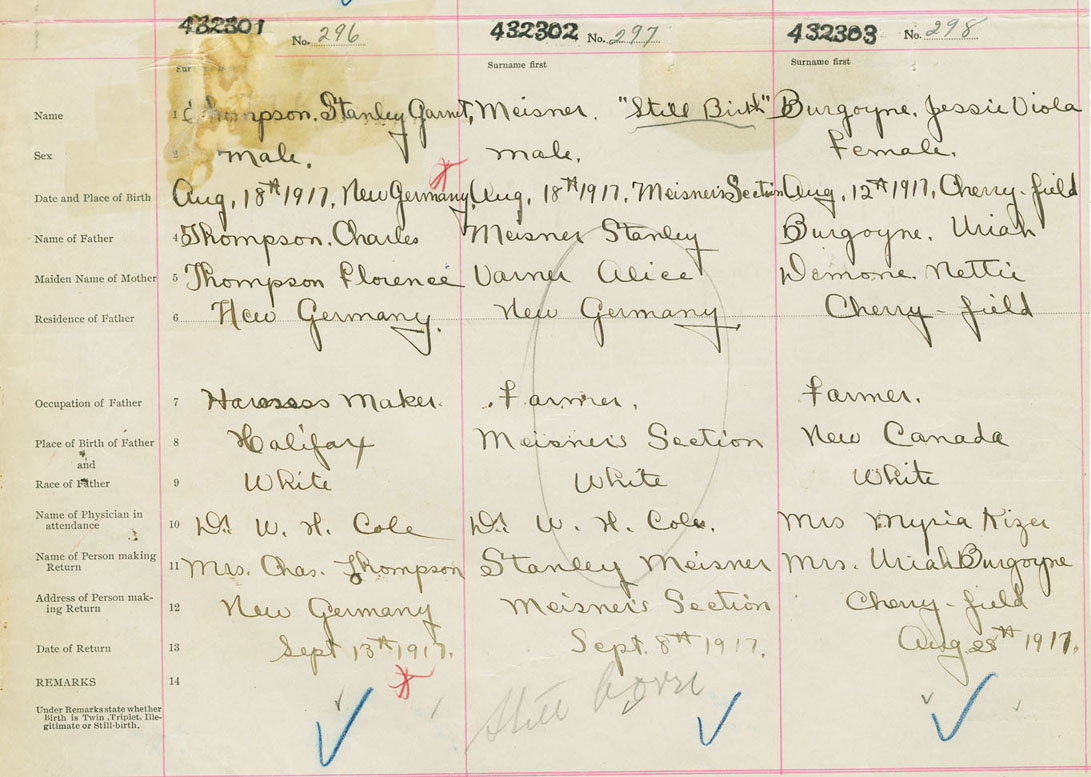 432301 No. 296 432302 No. 297 432303 No. 298
Surname first Surname first
Name 1 Thompson. Stanley Garnet, Meisner. "Still Birth" Burgoyne, Jessie Viola
Sex 2 Male. Male. Female.
Date and Place of Birth Aug, 18th 1917, New Germany, Aug, 18th 1917, Meisner's Section Aug, 12th 1917, Cherry-field
Name of Father 4 Thompson. Charles Meisner Stanley Burgoyne, Uriah
Maiden Name of Mother 5 Thompson Florence Varner Alice Demone Nettie
Residence of Father 6 New Germany. New Germany. Cherry-field
Occupation of Father 7 Harness Maker. Farmer. Farmer.
Place of Birth of Father 8 Halifax Meisner's Section New Canada
and
Race of Father 9 White White White
Name of Physician in
attendance 10 Dr. W. H. Cole Dr. W. H. Cole. Mrs Myria Kizer
Name of Person making
Return 11 Mrs. Chas. Thompson Stanley Meisner Mrs. Uriah Burgoyne
Address of Person mak-
ing Return 12 New Germany Meisner's Section Cherry-field
Date of Return 13 Sept 13th 1917. Sept. 8th 1917. Aug 28th 1917.
REMARKS 14
Still born
Under Remarks state whether
Birth is Twin, Triplet, Ille-
gitimate or Still-birth.